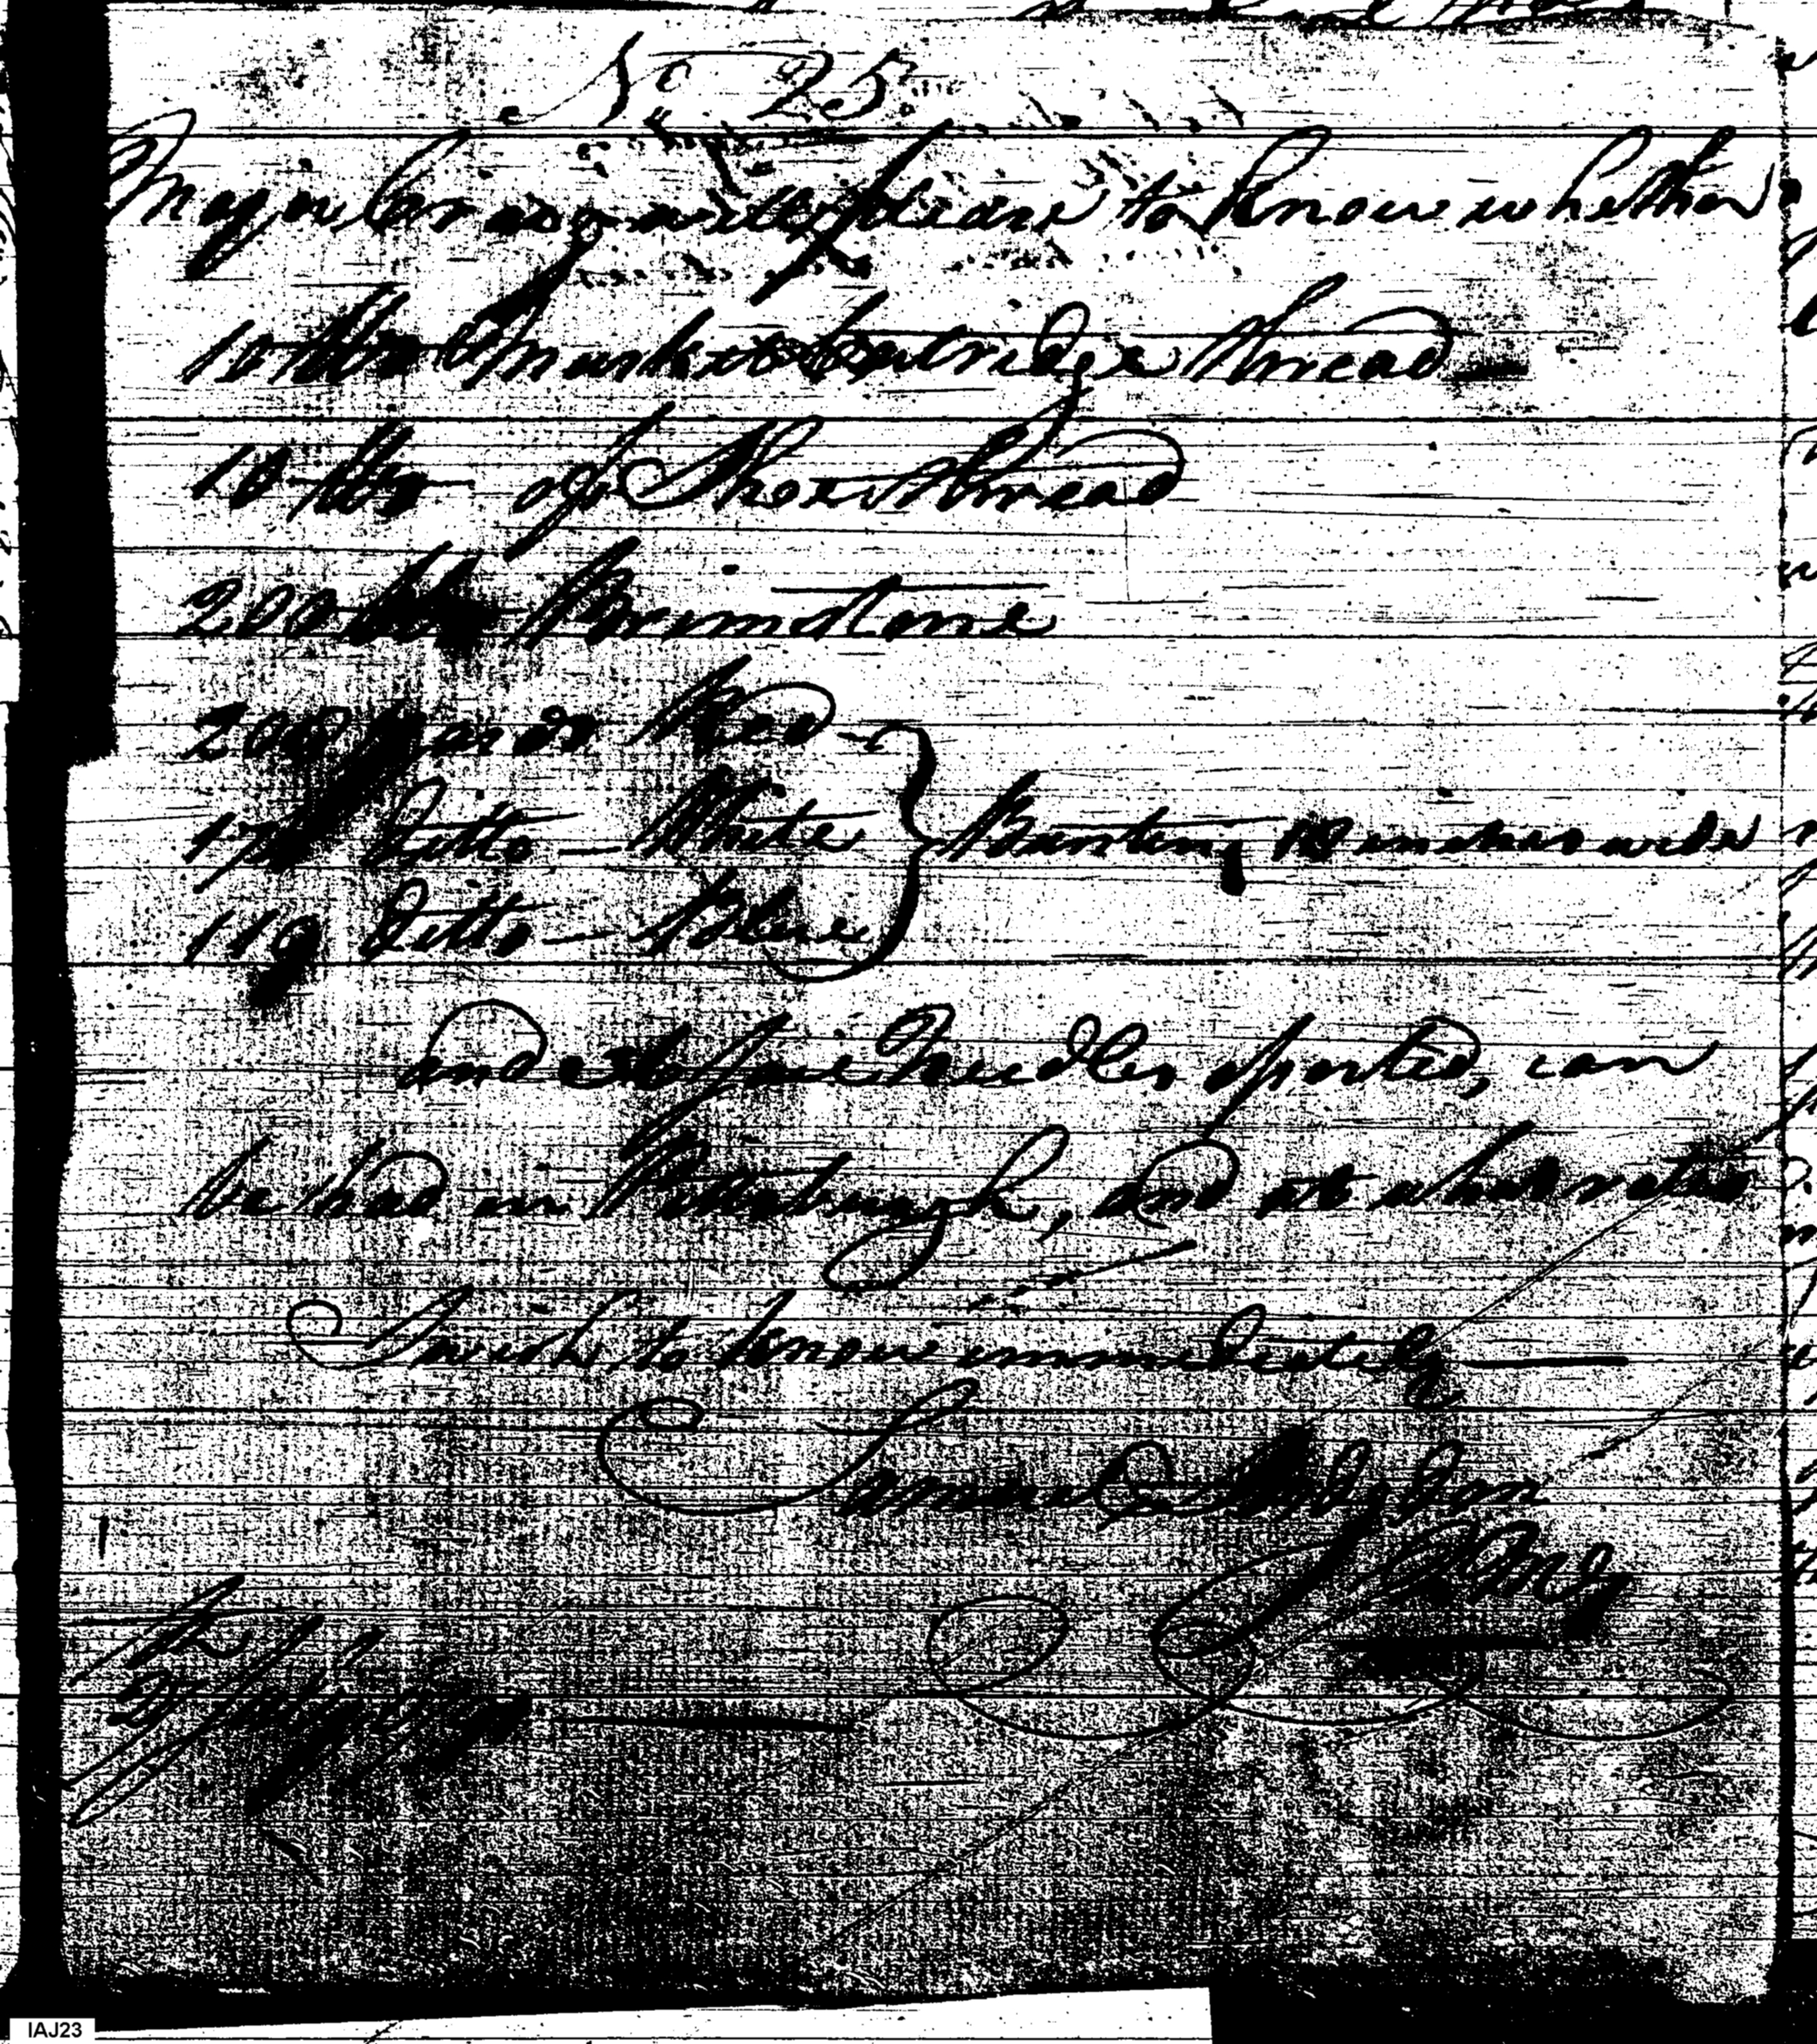 No. 25.
Major Craig will please to know whether
10 lbs Musket Cartridge thread
10 lbs of Shoe thread
200 lbs Brimstone
200 yards Red
17 ditto — White } Bunting 18 inches wide
119 ditto — Blue
and Needles assorted, can
be had in Pittsburgh, and at what rates
I wish to know immediately —
Samuel Hodgdon
QMG
IAJ23